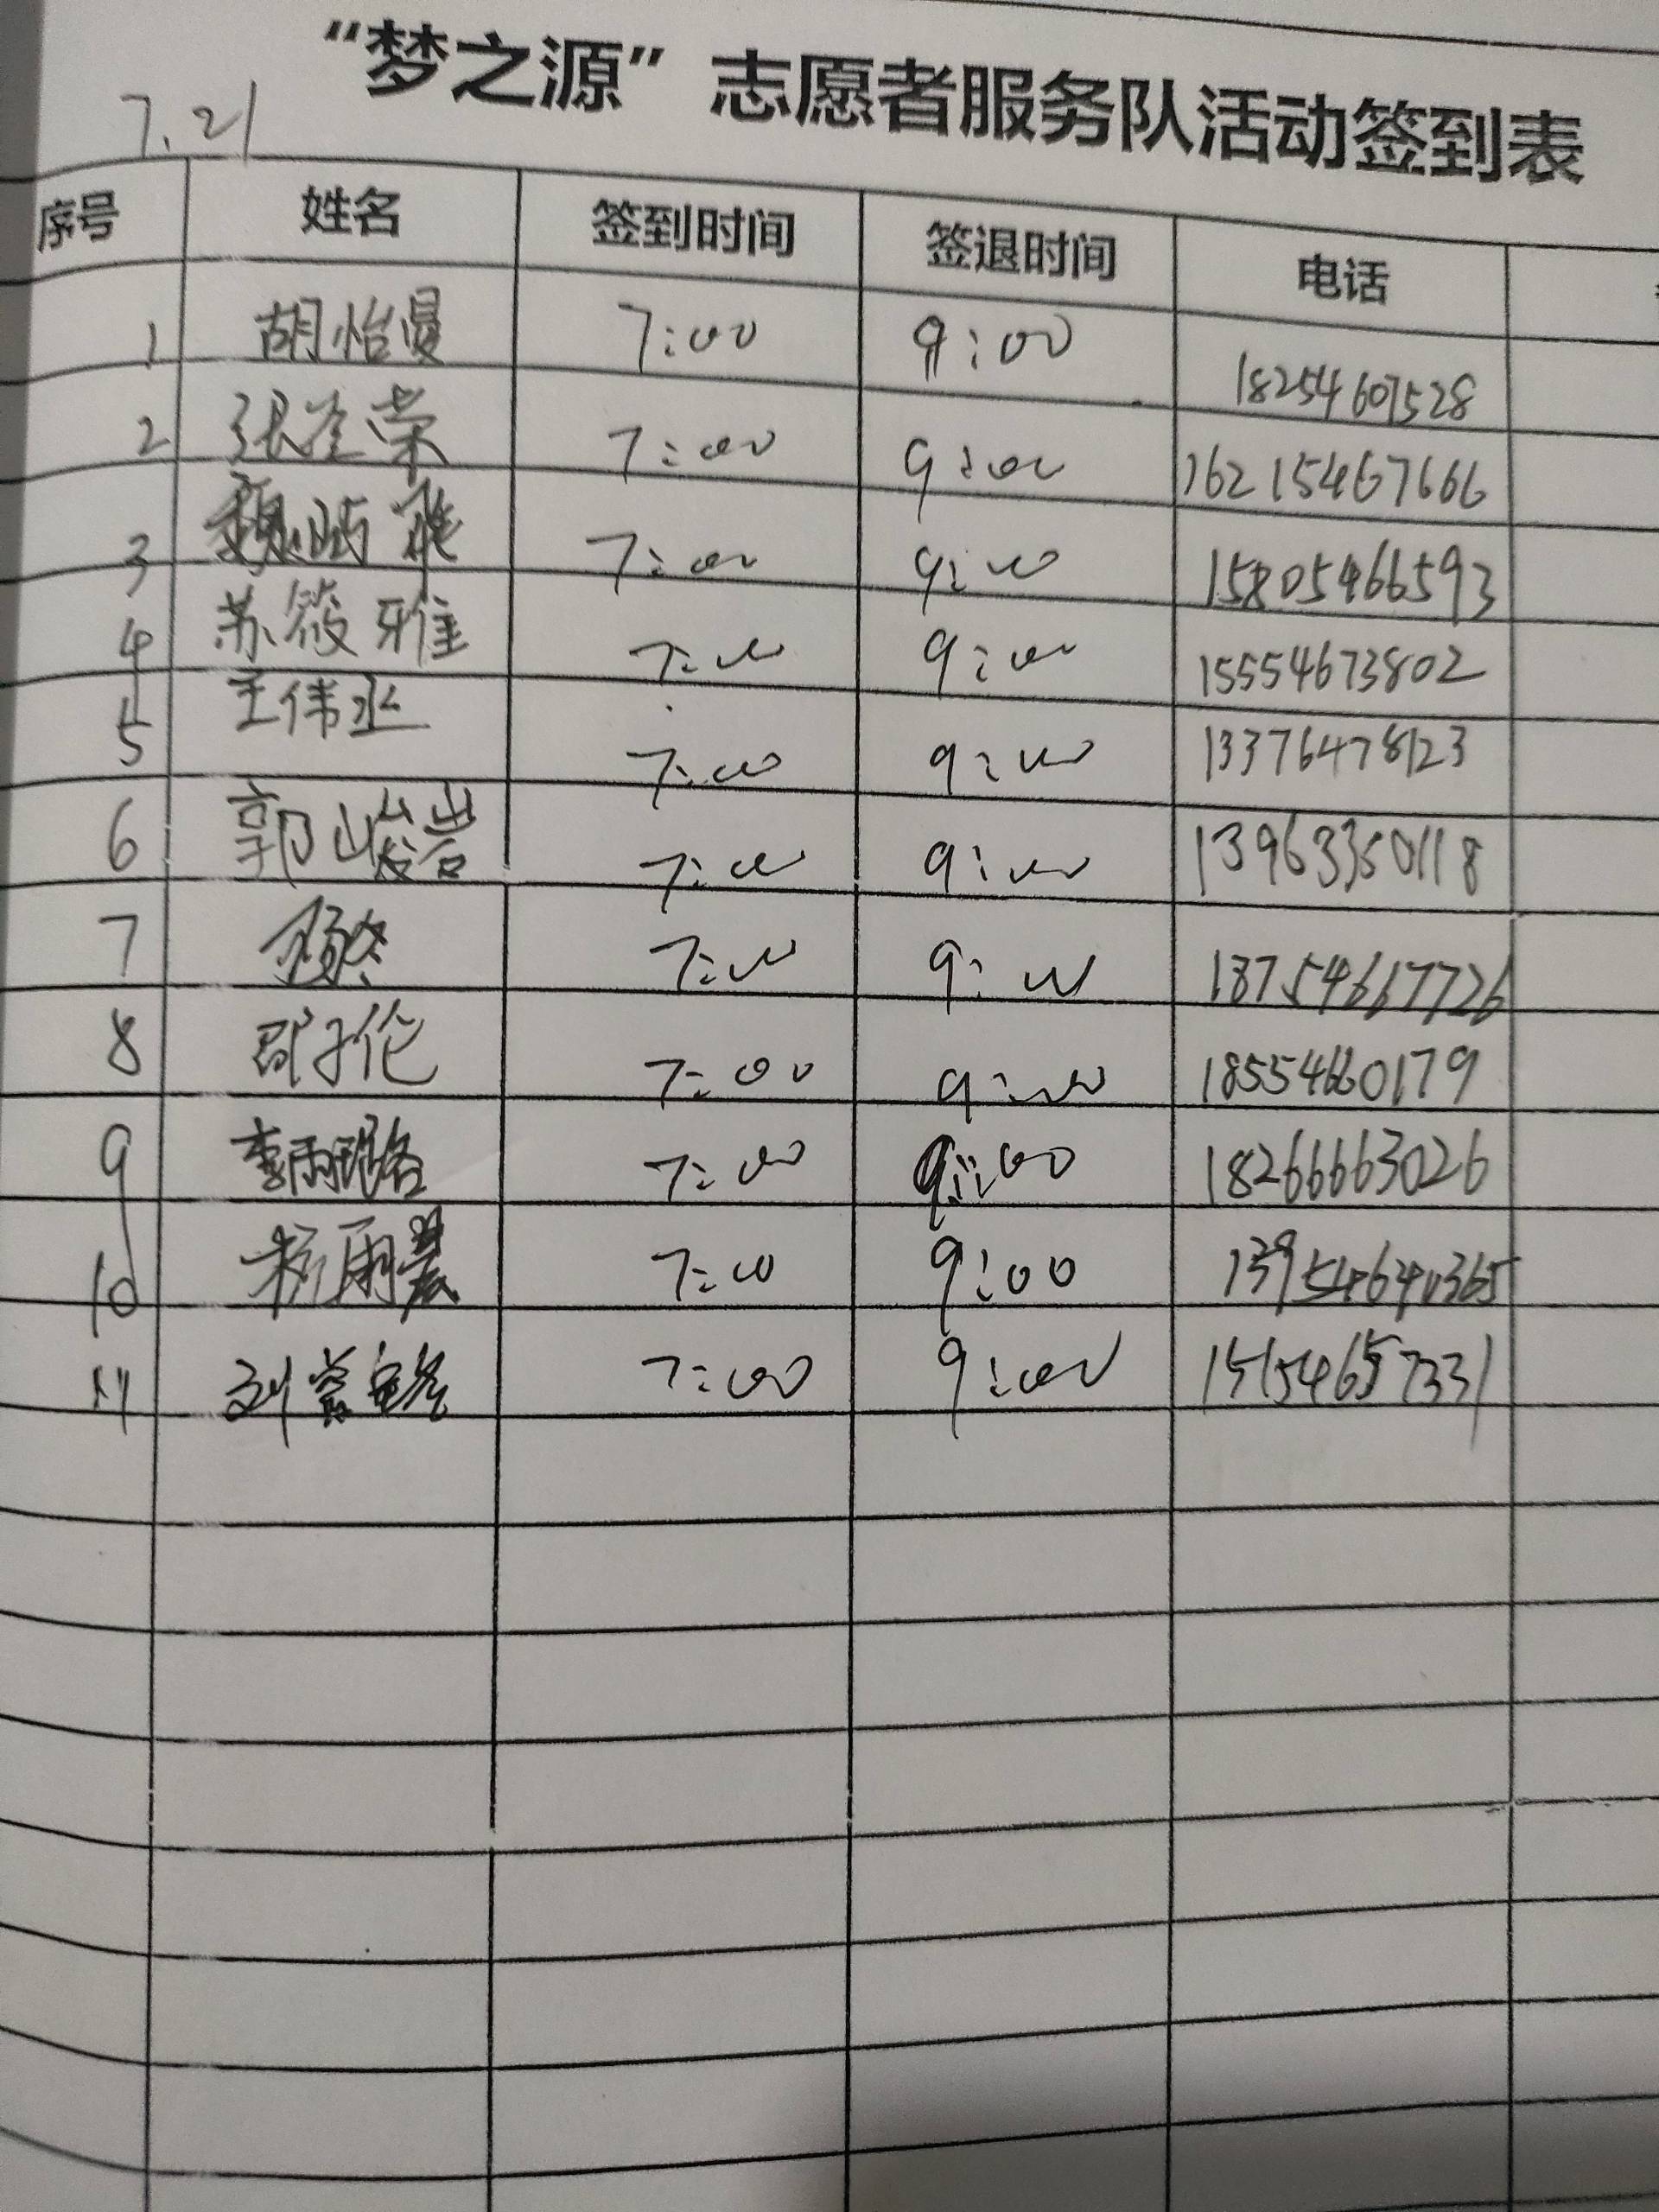 “梦之源”志愿者服务队活动签到表
7.21
序号 姓名 签到时间 签退时间 电话
1 胡怡曼 7:00 9:00 18254607528
2 张荣 7:00 9:00 16215467666
3 魏 7:00 9:00 15805466593
4 苏筱雅 7:00 9:00 15554673802
5 王伟丞 7:00 9:00 13376478123
6 郭峻岩 7:00 9:00 13963350118
7 7:00 9:00 18754667726
8 子伦 7:00 9:00 18554660179
9 李雨珺 7:00 9:00 18266663026
10 杨雨 7:00 9:00
11 刘 7:00 9:00 15154657331